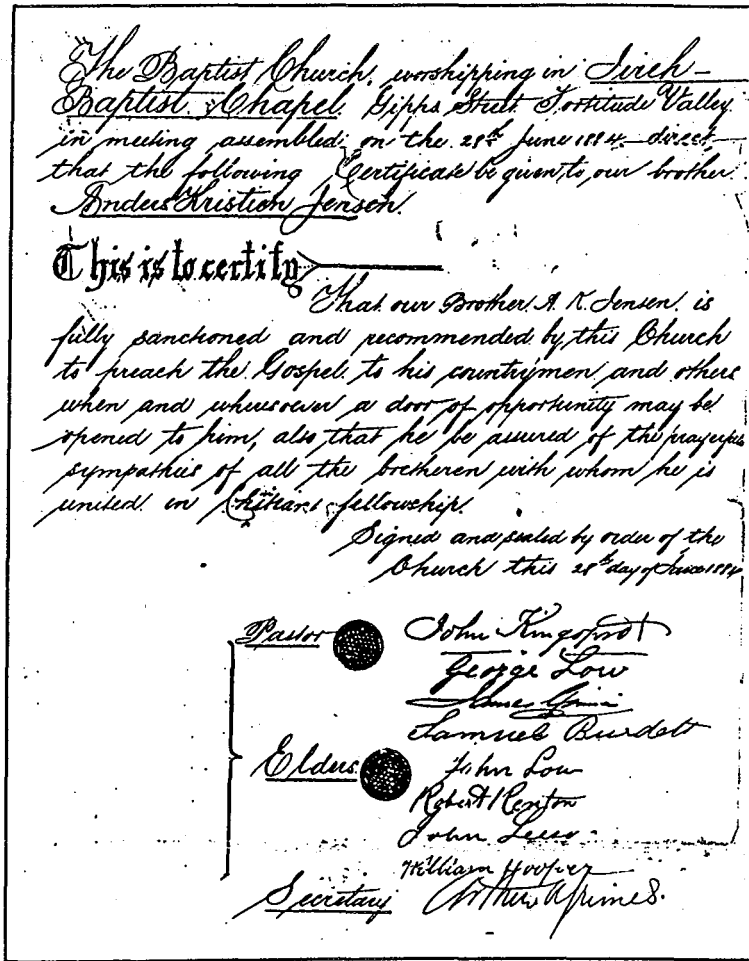 The Baptist Church, worshipping in Jireh-
Baptist Chapel Gipps Street Fortitude Valley
in meeting assembled on the 28th June 1884 direct
that the following Certificate be given to our brother
Anders Kristien Jensen.
This is to certify
That our Brother A. K. Jensen is
fully sanctioned and recommended by this Church
to preach the Gospel to his countrymen and others
when and wheresoever a door of opportunity may be
opened to him, also that he be assured of the prayerful
sympathies of all the bretheren with whom he is
united in Christian fellowship.
Signed and sealed by order of the
Church this 28th day of June 1884
Pastor John Kingsford
George Low
James
Samuel Burdett
Elders John Low
Robert Kenton
John
William Hooper
Secretary Arthur Grimes.